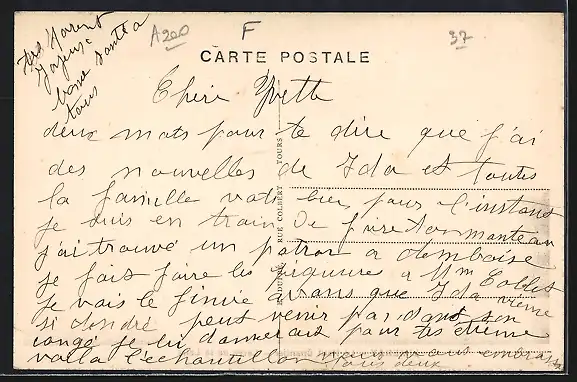 A200
F
37
CARTE POSTALE
bonne santé a
tous
Cheire Yvette
deux mots pour te dire que j'ai
des nouvelles de Ida et toutes
la famille vat bien pour l'instant
je suis en train de faire ton manteau
j'ai trouvé un patron a Amboise
je fait faire les piqures a Mm Collet
je vais le finir avans que Ida vienne
si dendré peut venir pandant son
congé je lui donnerait pour tes étrenne
voila l'echantillon nous vous embrass
tous deux
RUE COLBERT TOURS